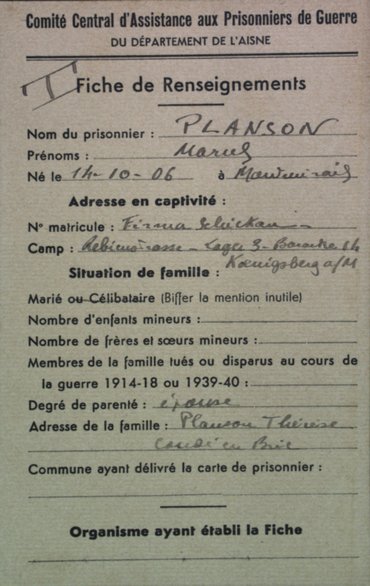 Comité Central d'Assistance aux Prisonniers de Guerre
DU DÉPARTEMENT DE L'AISNE
Fiche de Renseignements
Nom du prisonnier : PLANSON
Prénoms : Marcel
Né le 14-10-06 à Montmirail
Adresse en captivité :
N° matricule : Firma Schichau
Camp : Lager 3 - Baracke 14
Koenigsberg a/M
Situation de famille :
Marié ou Célibataire (Biffer la mention inutile)
Nombre d'enfants mineurs :
Nombre de frères et sœurs mineurs :
Membres de la famille tués ou disparus au cours de
la guerre 1914-18 ou 1939-40 :
Degré de parenté : épouse
Adresse de la famille : Planson Thérèse
Condé en Brie
Commune ayant délivré la carte de prisonnier :
Organisme ayant établi la Fiche